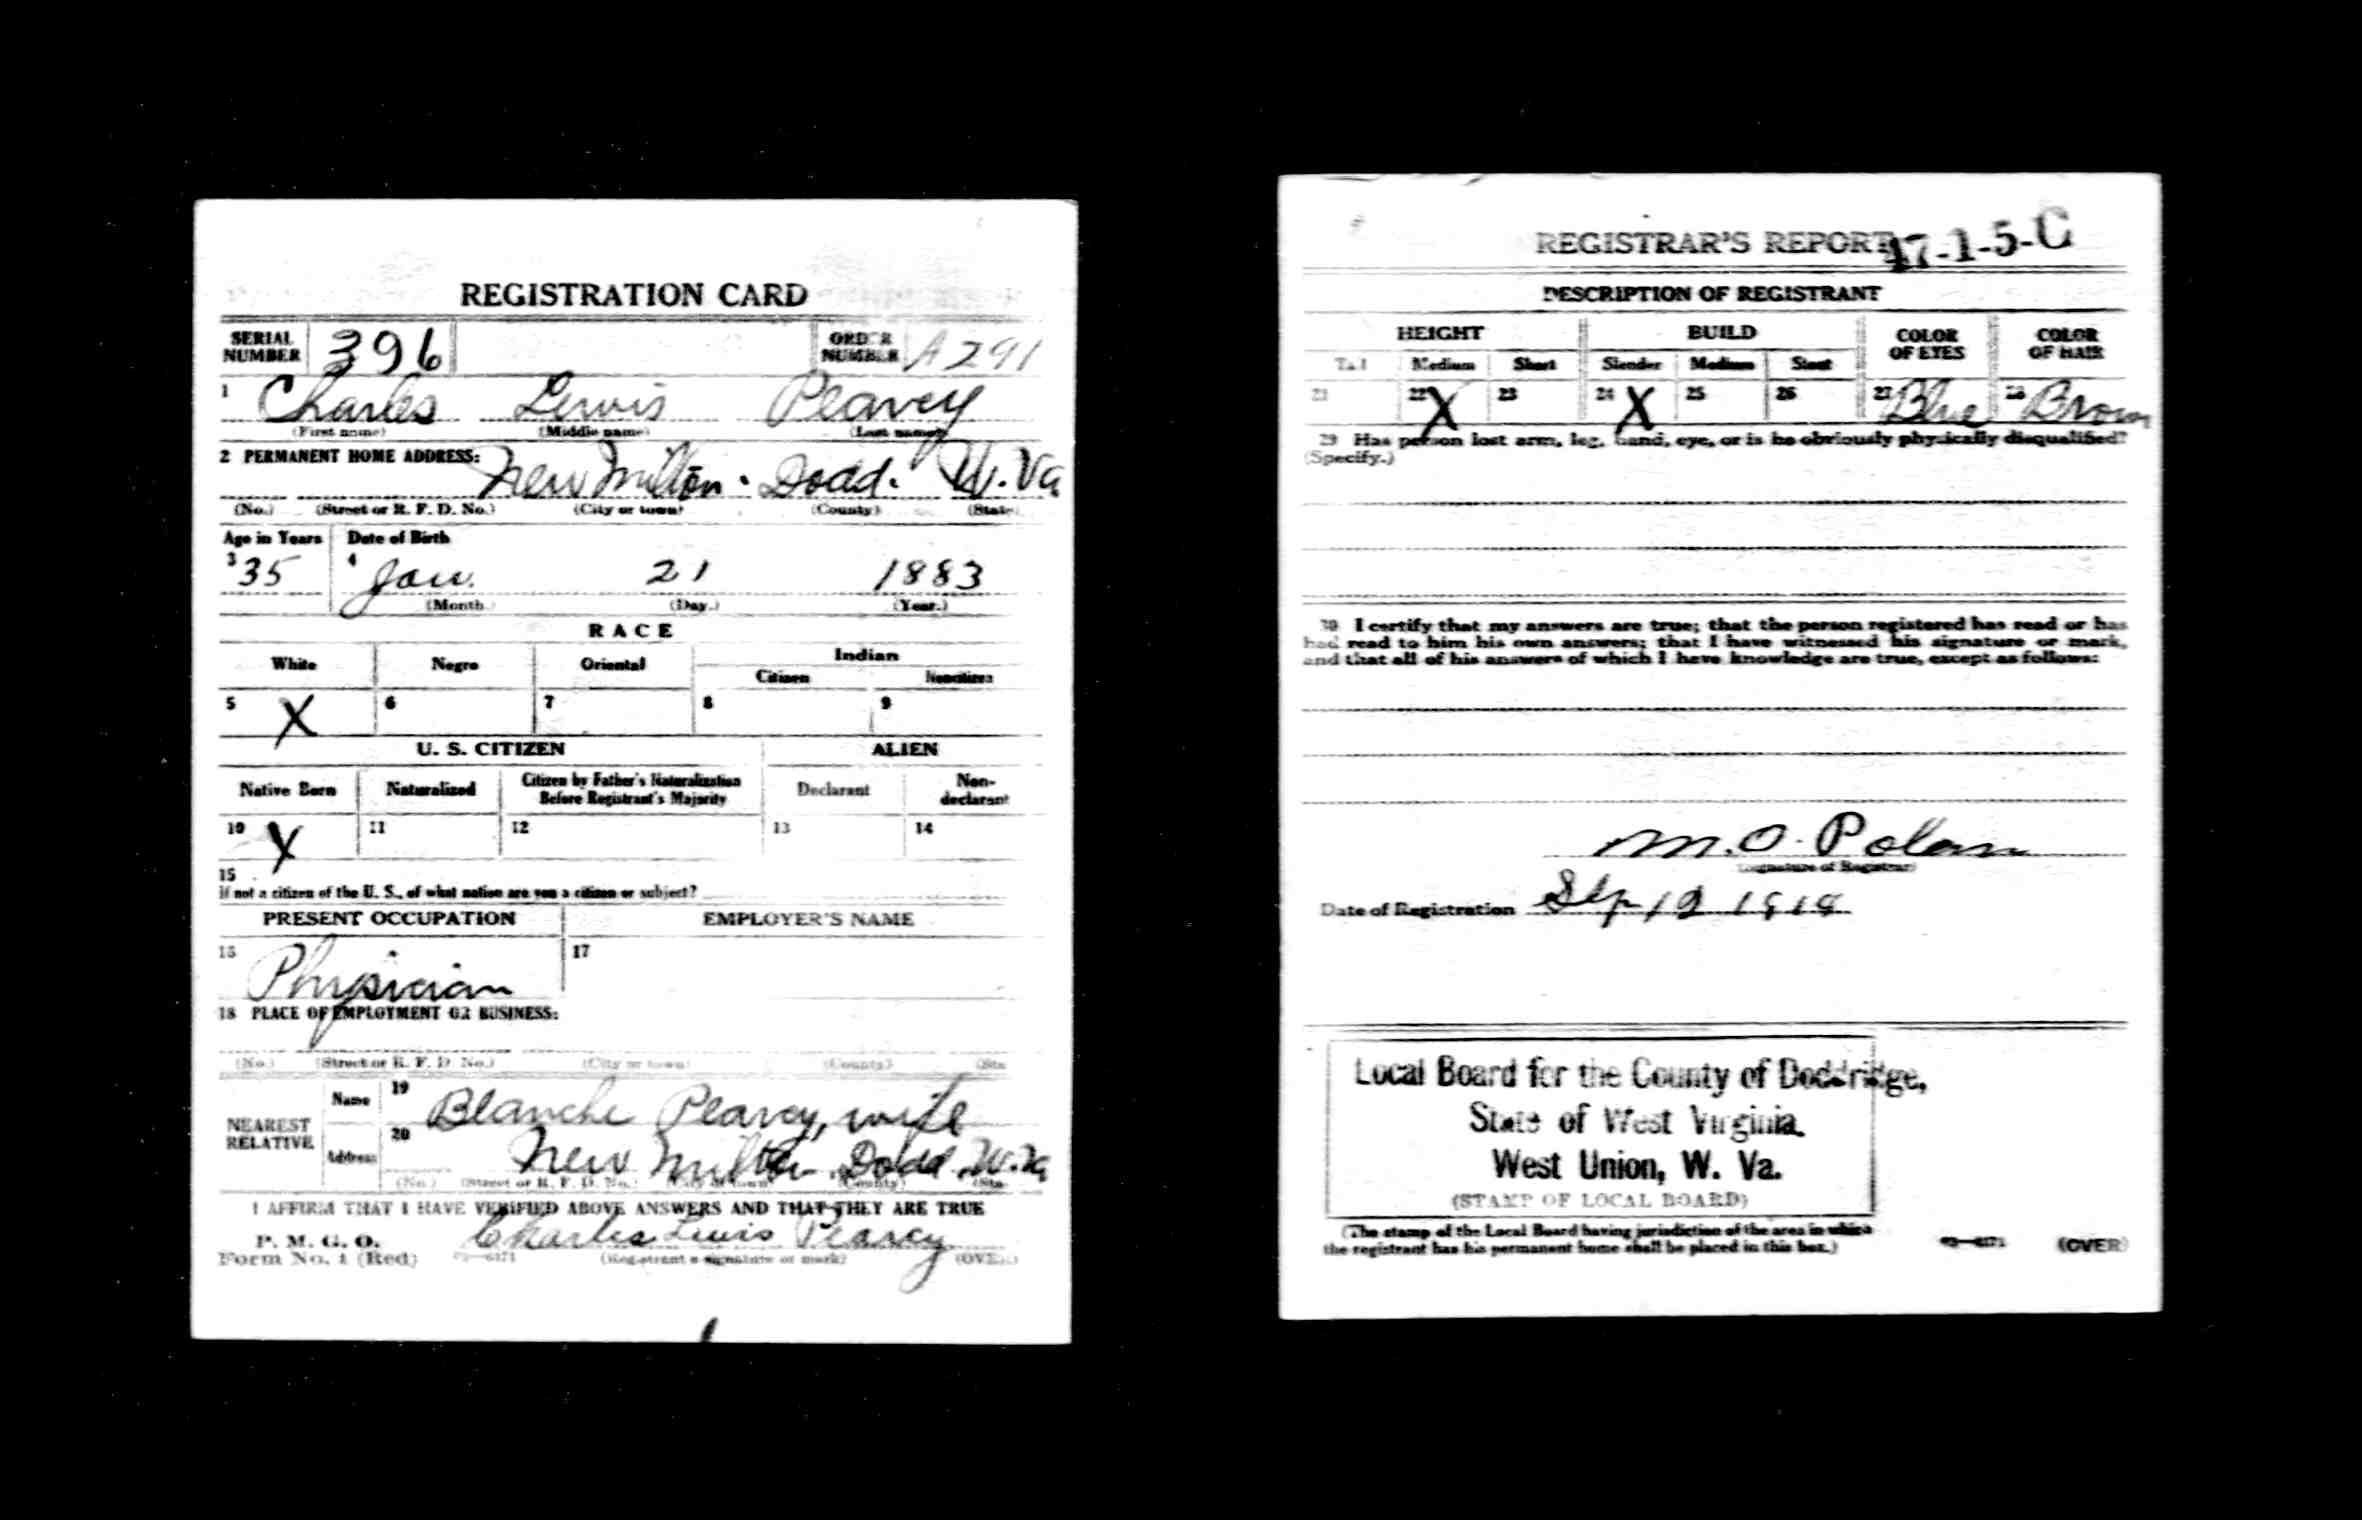 REGISTRATION CARD
SERIAL NUMBER 396 ORDER NUMBER A291
1 Charles Lewis Pearcy
(First name) (Middle name) (Last name)
2 PERMANENT HOME ADDRESS:
New Milton. Dodd. W. Va
(No.) (Street or R. F. D. No.) (City or town) (County) (State)
Age in Years Date of Birth
3 35 4 Jan. 21 1883
(Month.) (Day.) (Year.)
RACE
White Negro Oriental Indian
Citizen Noncitizen
5 X 6 7 8 9
U. S. CITIZEN ALIEN
Native Born Naturalized Citizen by Father's Naturalization Before Registrant's Majority Declarant Non-declarant
10 X 11 12 13 14
15
If not a citizen of the U. S., of what nation are you a citizen or subject?
PRESENT OCCUPATION EMPLOYER'S NAME
16 Physician 17
18 PLACE OF EMPLOYMENT OR BUSINESS:
(No.) (Street or R. F. D. No.) (City or town) (County) (Sta
NEAREST RELATIVE Name 19 Blanche Pearcy, wife
Address 20 New Milton Dodd W. Va
(No.) (Street or R. F. D. No.) (City or town) (County) (Sta
I AFFIRM THAT I HAVE VERIFIED ABOVE ANSWERS AND THAT THEY ARE TRUE
P. M. G. O.
Form No. 1 (Red) Charles Lewis Pearcy
(Registrant's signature or mark) (OVER)
REGISTRAR'S REPORT 47-1-5-C
DESCRIPTION OF REGISTRANT
HEIGHT BUILD COLOR OF EYES COLOR OF HAIR
Tall Medium Short Slender Medium Stout
21 22 X 23 24 X 25 26 27 Blue 28 Brown
29 Has person lost arm, leg, hand, eye, or is he obviously physically disqualified?
(Specify.)
30 I certify that my answers are true; that the person registered has read or has
had read to him his own answers; that I have witnessed his signature or mark,
and that all of his answers of which I have knowledge are true, except as follows:
M. O. Polan
(Signature of Registrar)
Date of Registration Sep 12 1918
Local Board for the County of Doddridge,
State of West Virginia.
West Union, W. Va.
(STAMP OF LOCAL BOARD)
(The stamp of the Local Board having jurisdiction of the area in which
the registrant has his permanent home shall be placed in this box.)
03—6171 (OVER)